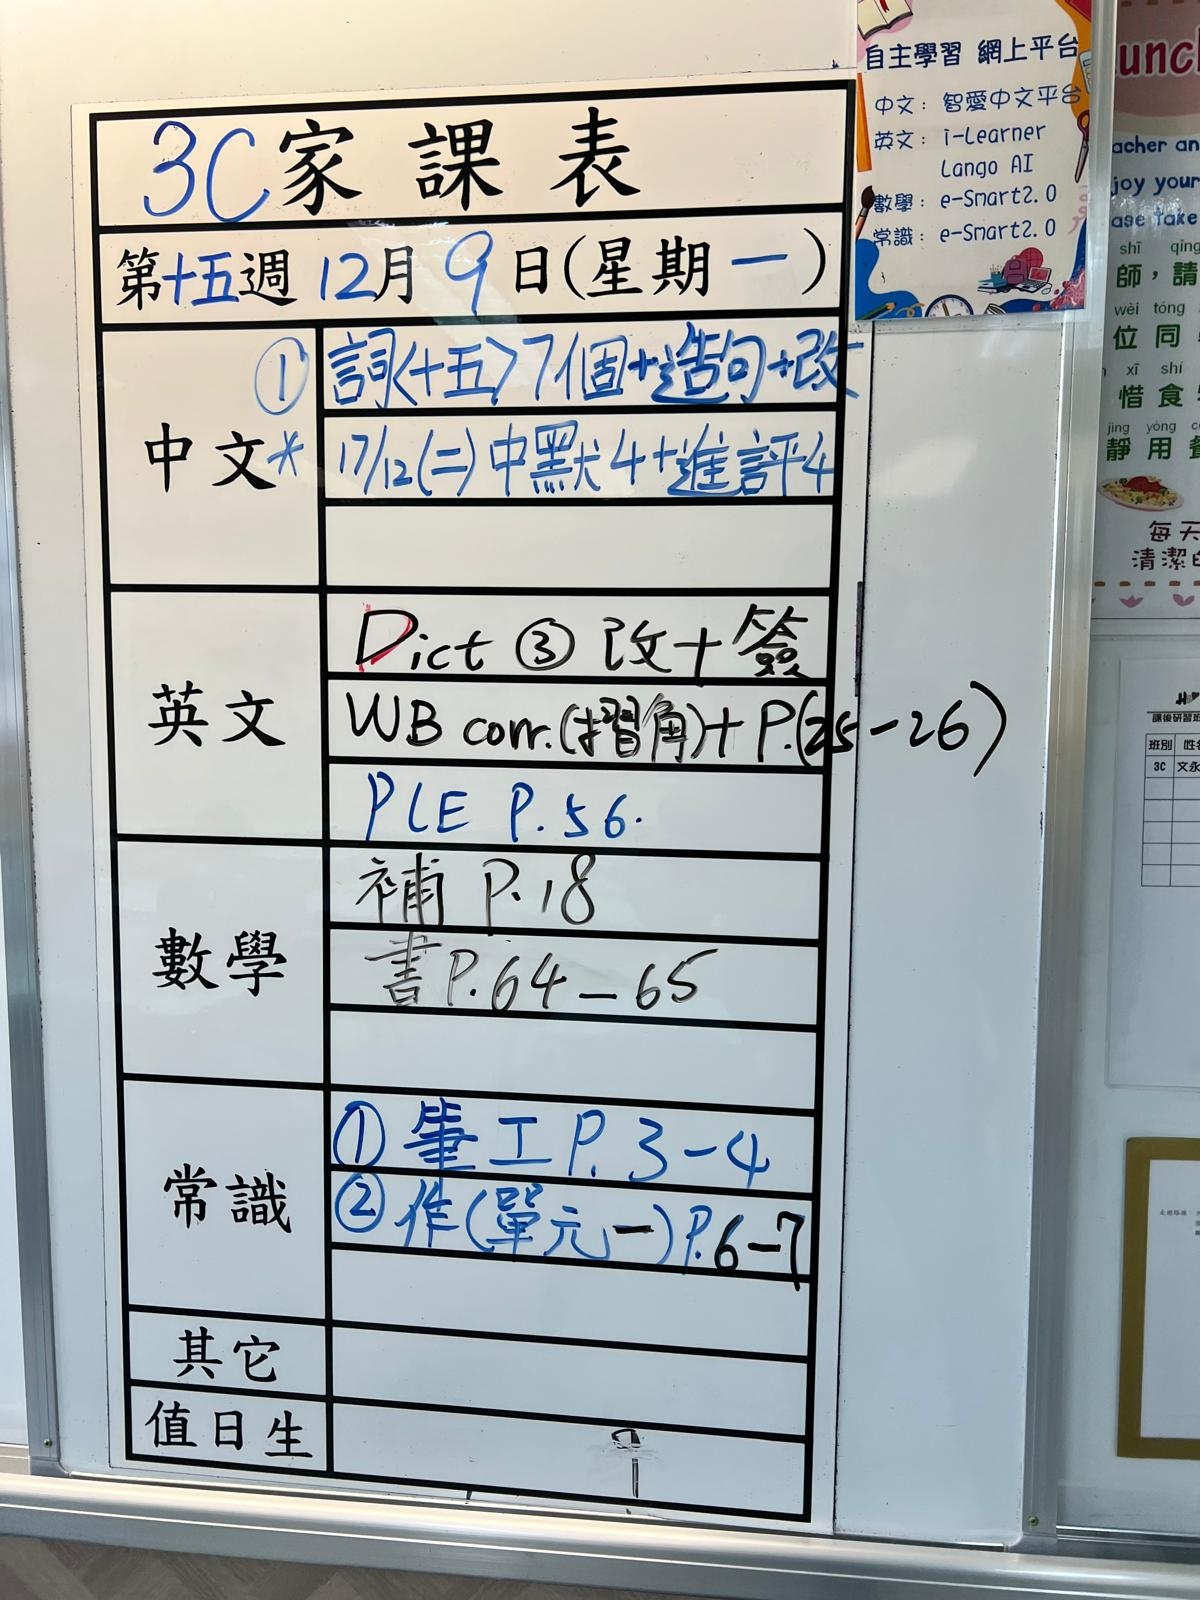 3C家課表
第十五週 12月9日(星期一)
中文
① 詞<十五>7個+造句+改
* 17/12(二)中默4+進評4
英文
Dict ③ 改+簽
WB corr.(摺角)+P.(25-26)
PLE P.56.
數學
補 P.18
書P.64-65
常識
①筆工P.3-4
②作(單元一)P.6-7
其它
值日生
自主學習 網上平台
中文：智愛中文平台
英文：i-Learner
Lango AI
數學：e-Smart2.0
常識：e-Smart2.0
unch
acher an
joy your
ase take
shī qǐng
師，請
wèi tóng
位同
xī shí
惜食
jìng yòng
靜用餐
每天
清潔
課後研習班
班別 姓名
3C 文永